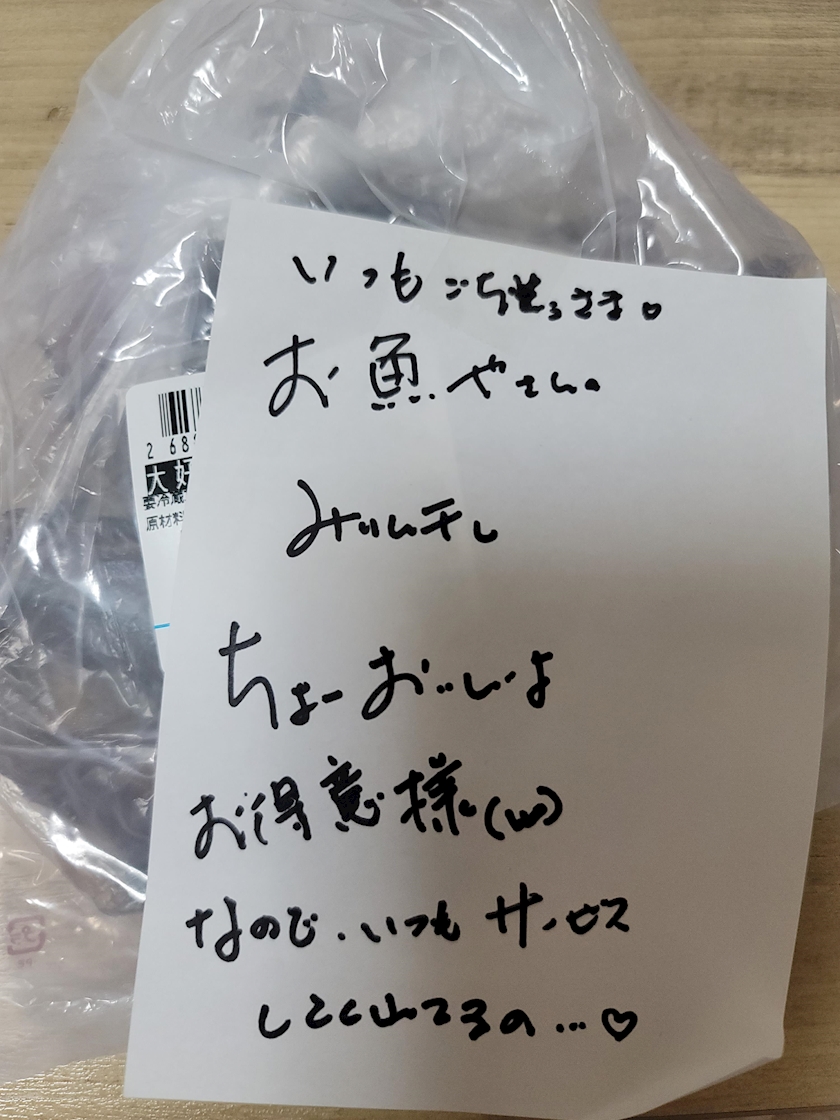 いつも ごち さま♡
お魚やさんの
2 68
大好
要冷蔵
原材料
みりん干し
ちょーおいしいよ
お得意様(w)
なので、いつもサービス
してくれてるの…♡